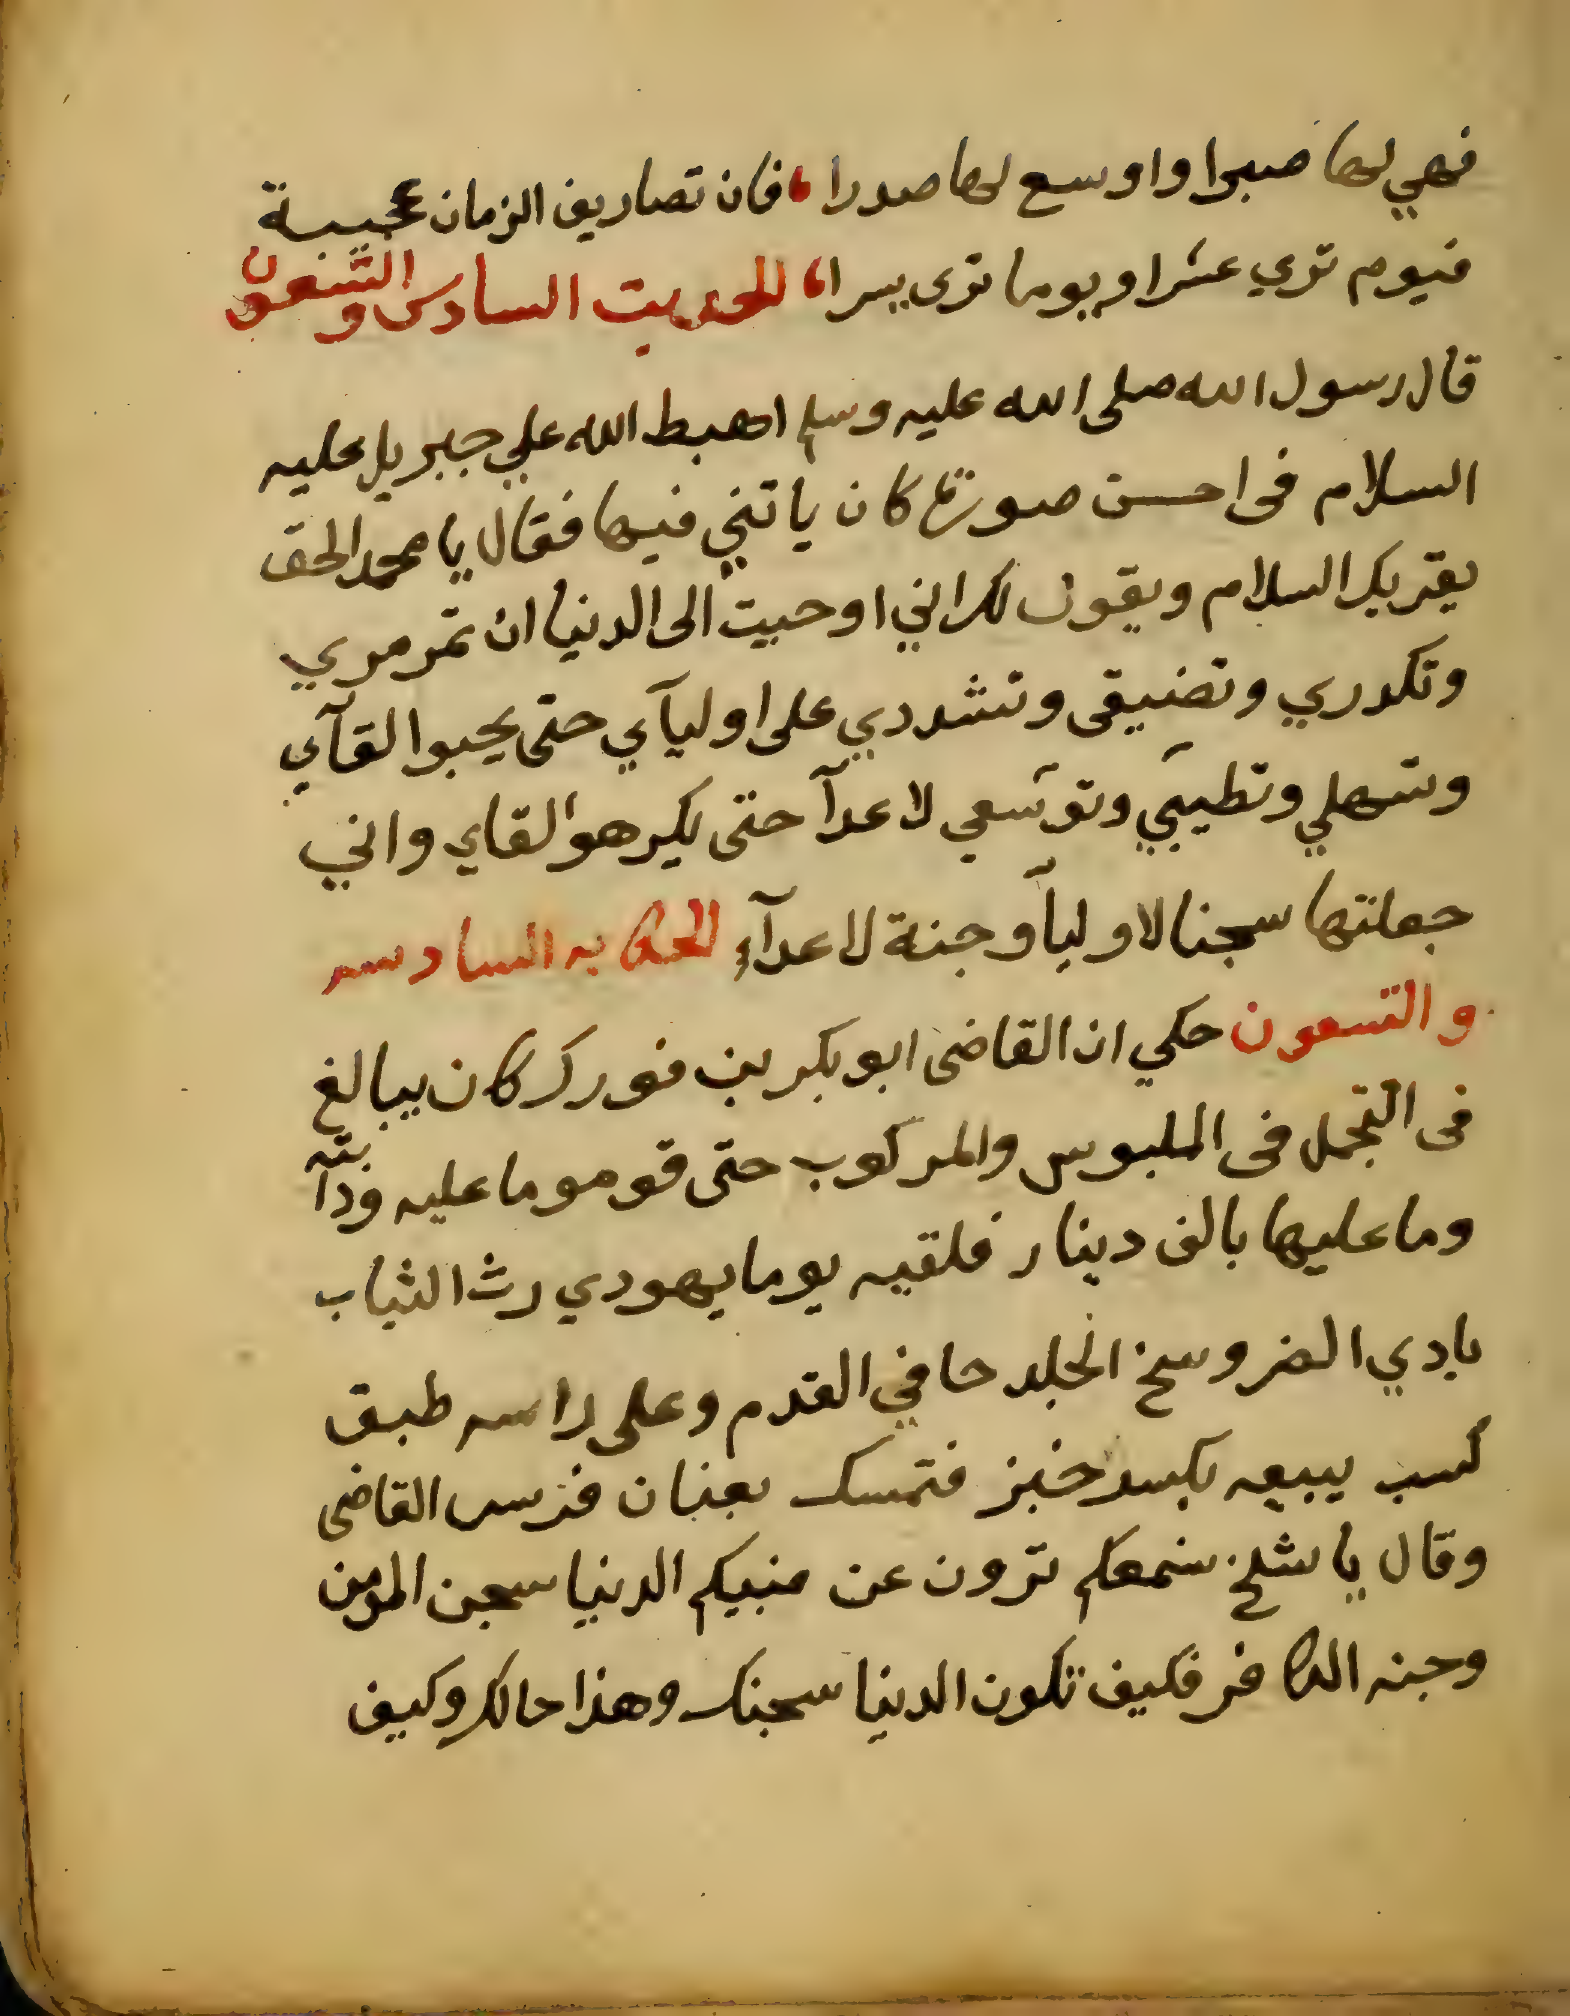 فهي لها صبرا واوسع لها صدرا، فان تصاريف الزمان عجيبة
فيوم تري عشرا ويوما ترى يسرا، الحديث السادس والتسعون
قال رسول الله صلى الله عليه وسلم اهبط الله علي جبريل عليه
السلام فى احسن صورة كان ياتني فيها فقال يا محمد الحق
يقريك السلام ويقول لك اني اوحيت الى الدنيا ان تمرمري
وتكدري وتضيقى وتشددي على اوليآي حتى يحبوا لقآي
وتسهلي وتطيبي وتوسعي لاعدآ حتى يكرهوا لقاي واني
جعلتها سجنا لاوليآ وجنة لاعدآء الحكايه السادسه
والتسعون حكي ان القاضى ابو بكر بن فورك كان يبالغ
فى التجمل فى الملبوس والمركوب حتى قوموا ما عليه ودآبته
وما عليها بالف دينار فلقيه يوما يهودي رث الثياب
بادي الضر وسخ الجلد حافي القدم وعلى راسه طبق
كسب يبيعه بكسر خبز فتمسك بعنان فرس القاضى
وقال يا شيخ سمعكم ترون عن نبيكم الدنيا سجن المومن
وجنه الكافر فكيف تكون الدنيا سجنك وهذا حالك وكيف